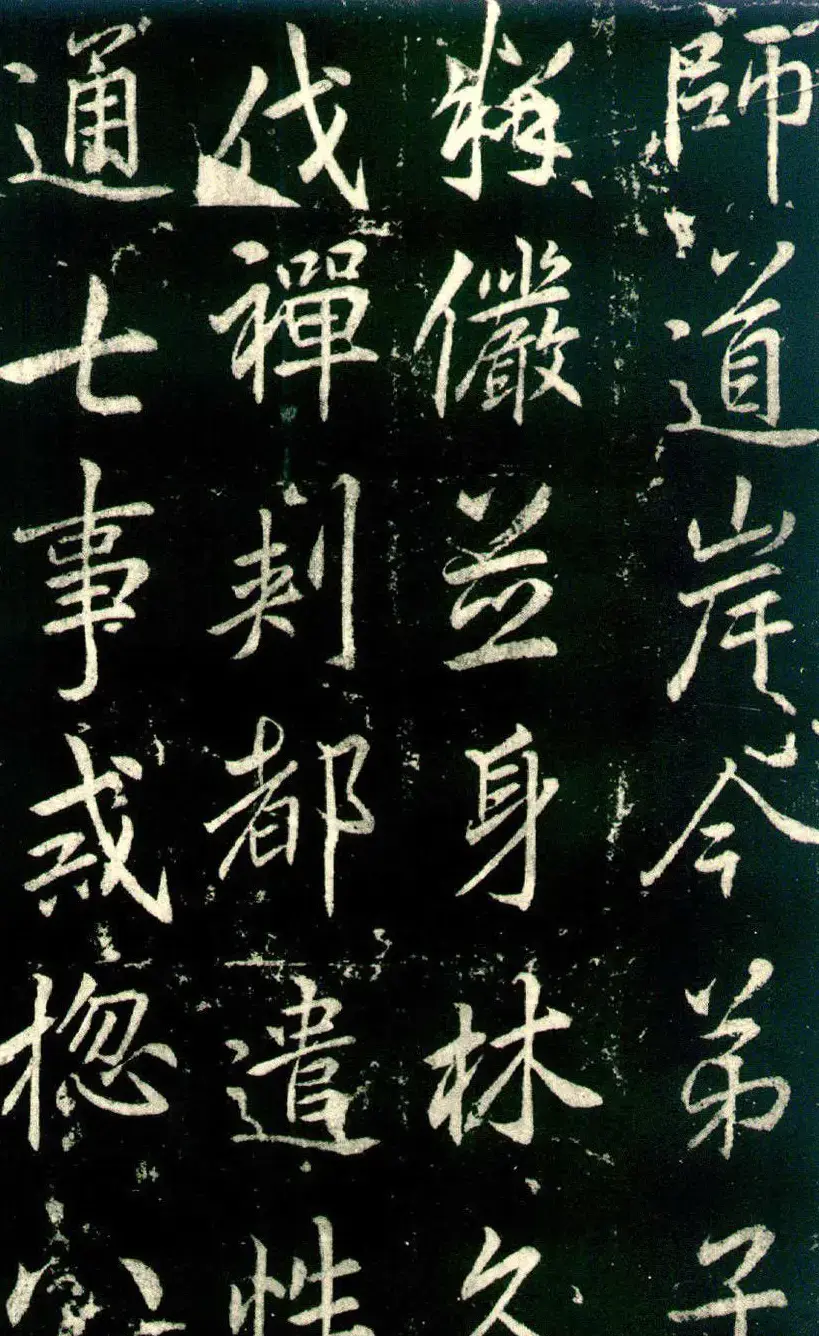 師道岸今弟子
釋儼並身林久
伐禪刹都遣性
通七事或揔